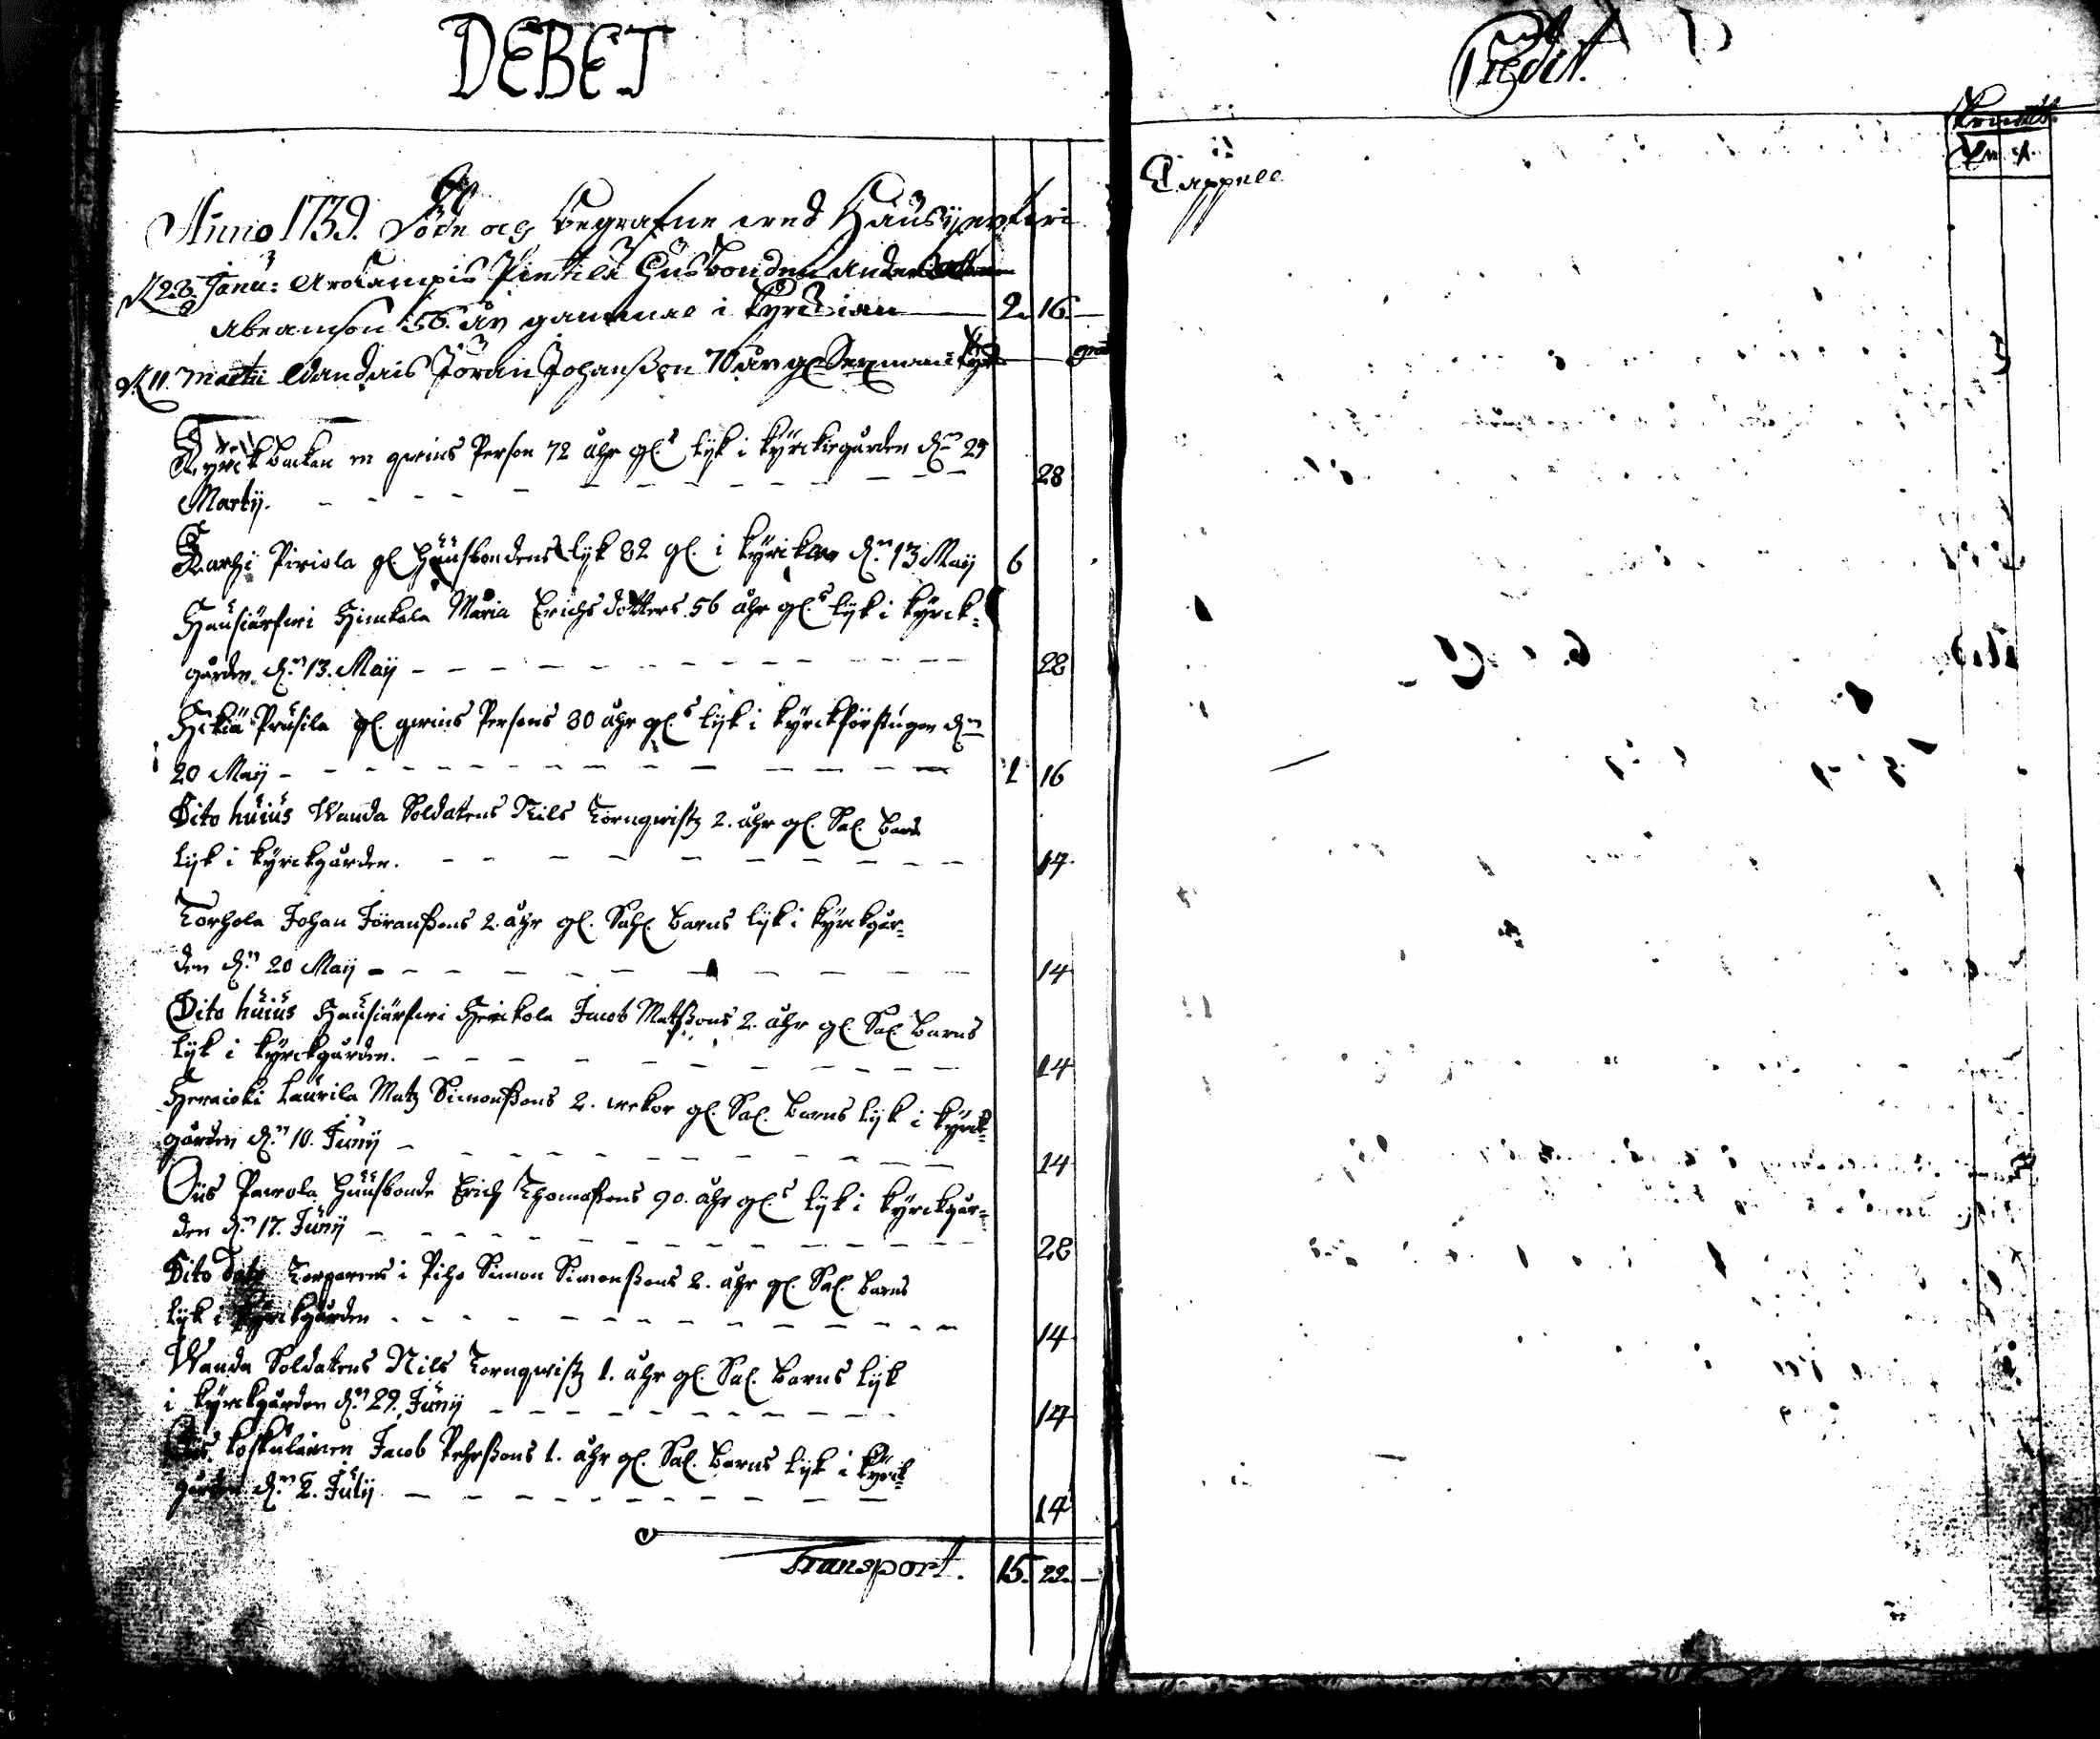 DEBET
Anno 1739. Döde och begrafne wed Hausijerfwi
d. 28. Janu: Arolampis Pintilä Husbonden Anders
Abramson 56. åhr gammal i kyrckian 2. 16. —
d. 11 Martii Wandais Jöran Johanßon 70 åhr gl. Sexman i kyrk— gratis
Kyrckbacken en qwins Person 72 åhr gl:s lijk i kyrckiogården d:n 25
Martij. - - - 28
Karhi Piriola gl. Huusbondens lijk 82 gl. i kyrickan d:n 13 Maij 6
Hausiärfwi Himkala Maria Erichs dotters. 56 åhr gl:s lijk i kyrck=
gården d:n 13. Maij - - - 28
Hikiä Prusila gl. qwins Persons 80 åhr gl:s lijk i kyrckförstugon d:n
20 Maij - - - 1 16
Dito huius Wanda Soldatens Nils Törnqwistz 2. åhr gl. Sal. barns
lijk i kyrckgården. - - - 14.
Torhola Johan Föranßons 2. åhr gl. Sahl. barns lijk i kyrckgår=
den d:n 20 Maij - - - 14
Dito huius Hausiärfwi Heickola Jacob Matßons 2. åhr gl. Sal. barns
lijk i kyrckgården. - - - 14
Heraioki Laurila Matz Simonßons 2. wekor gl. Sal. barns lijk i kyrck=
gården d:n 10. Junij - - - 14
Ois Pawola Huusbonde Erich Thomaßons 90. åhr gl:s lijk i kyrckgår=
den d:n 17. Junij - - - 28
Dito dato Torparens i Piho Simon Simonßons 2. åhr gl. Sal. barns
lijk i kyrckgården - - - 14
Wanda Soldatens Nils Tornqwistz 1. åhr gl. Sal. barns lijk
i kyrckgården d:n 29. Junij - - - 14
Ois Koskulainen Jacob Pehrßons 1. åhr gl. Sal. barns lijk i kyrck=
gården d:n 2. Julij - - - 14
Transport. 15. 22. —
Credit.
Cappell